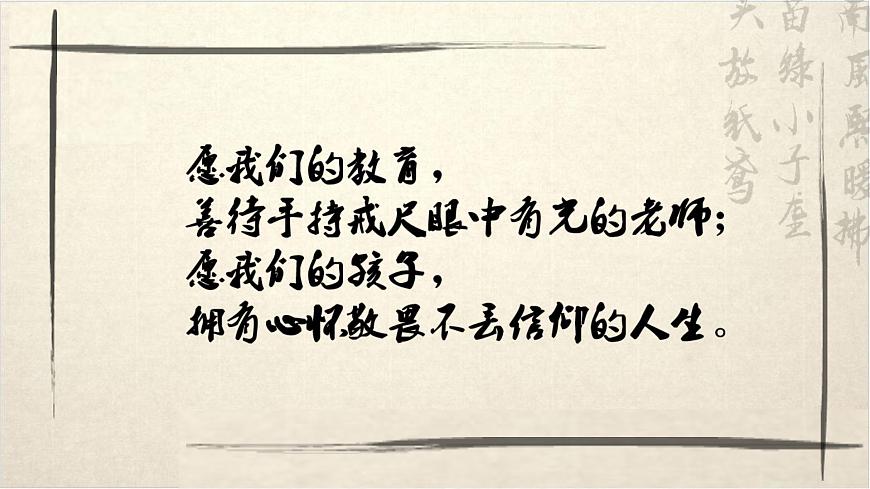 愿我们的教育，
善待手持戒尺眼中有光的老师；
愿我们的孩子，
拥有心怀敬畏不丢信仰的人生。
南风熙暖拂
苗绿小子垄
头放纸鸢